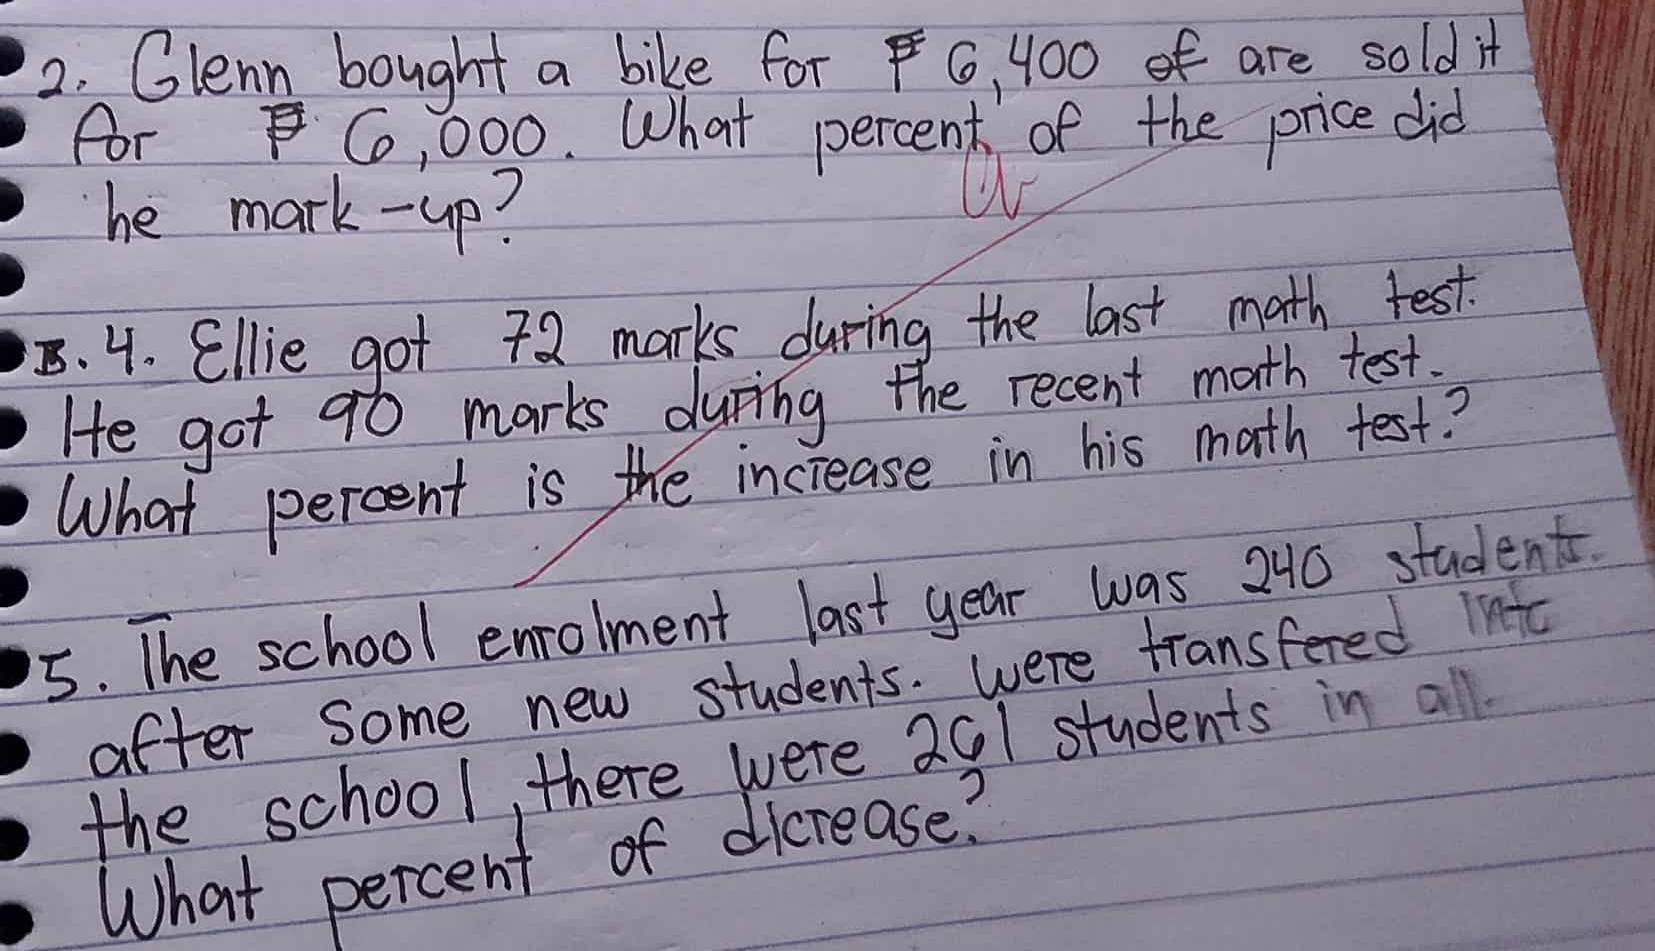 2. Glenn bought a bike for ₱ 6,400 of are sold it
for ₱ 6,000. What percent of the price did
he mark-up?
B. 4. Ellie got 72 marks during the last math test.
He got 90 marks during the recent math test.
What percent is the increase in his math test?
5. The school enrolment last year was 240 students.
after some new students. were transfered into
the school, there were 261 students in all.
What percent of dicrease?